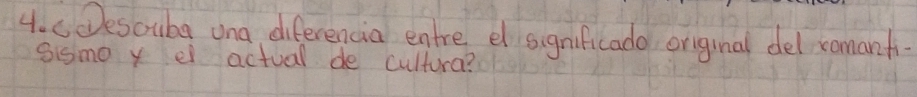 4. ¿Descuba una diferencia entre el significado original del romanti-
sismo y el actual de cultura?